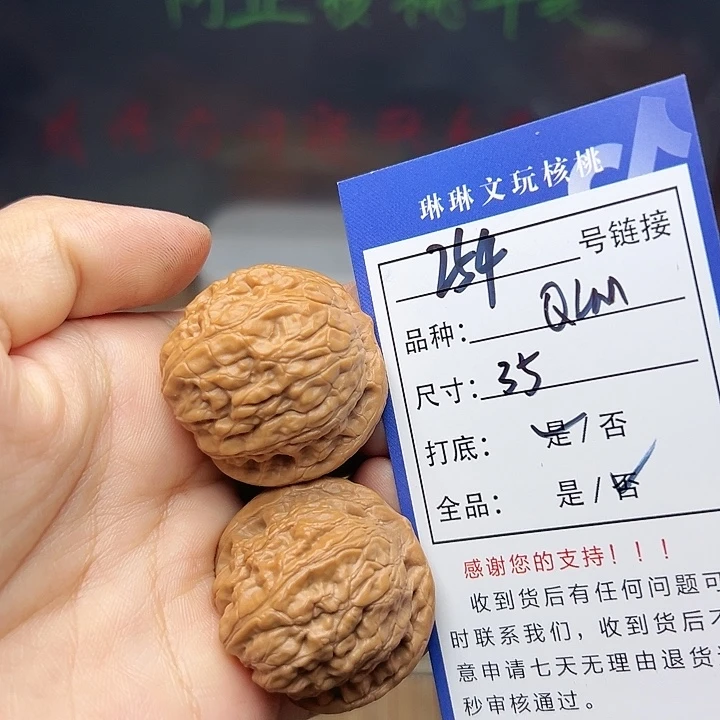 琳琳文玩核桃
254号链接
品种：QLM
尺寸：35
打底：是/否
全品：是/否
感谢您的支持！！！
收到货后有任何问题可
时联系我们，收到货后不
意申请七天无理由退货
秒审核通过。